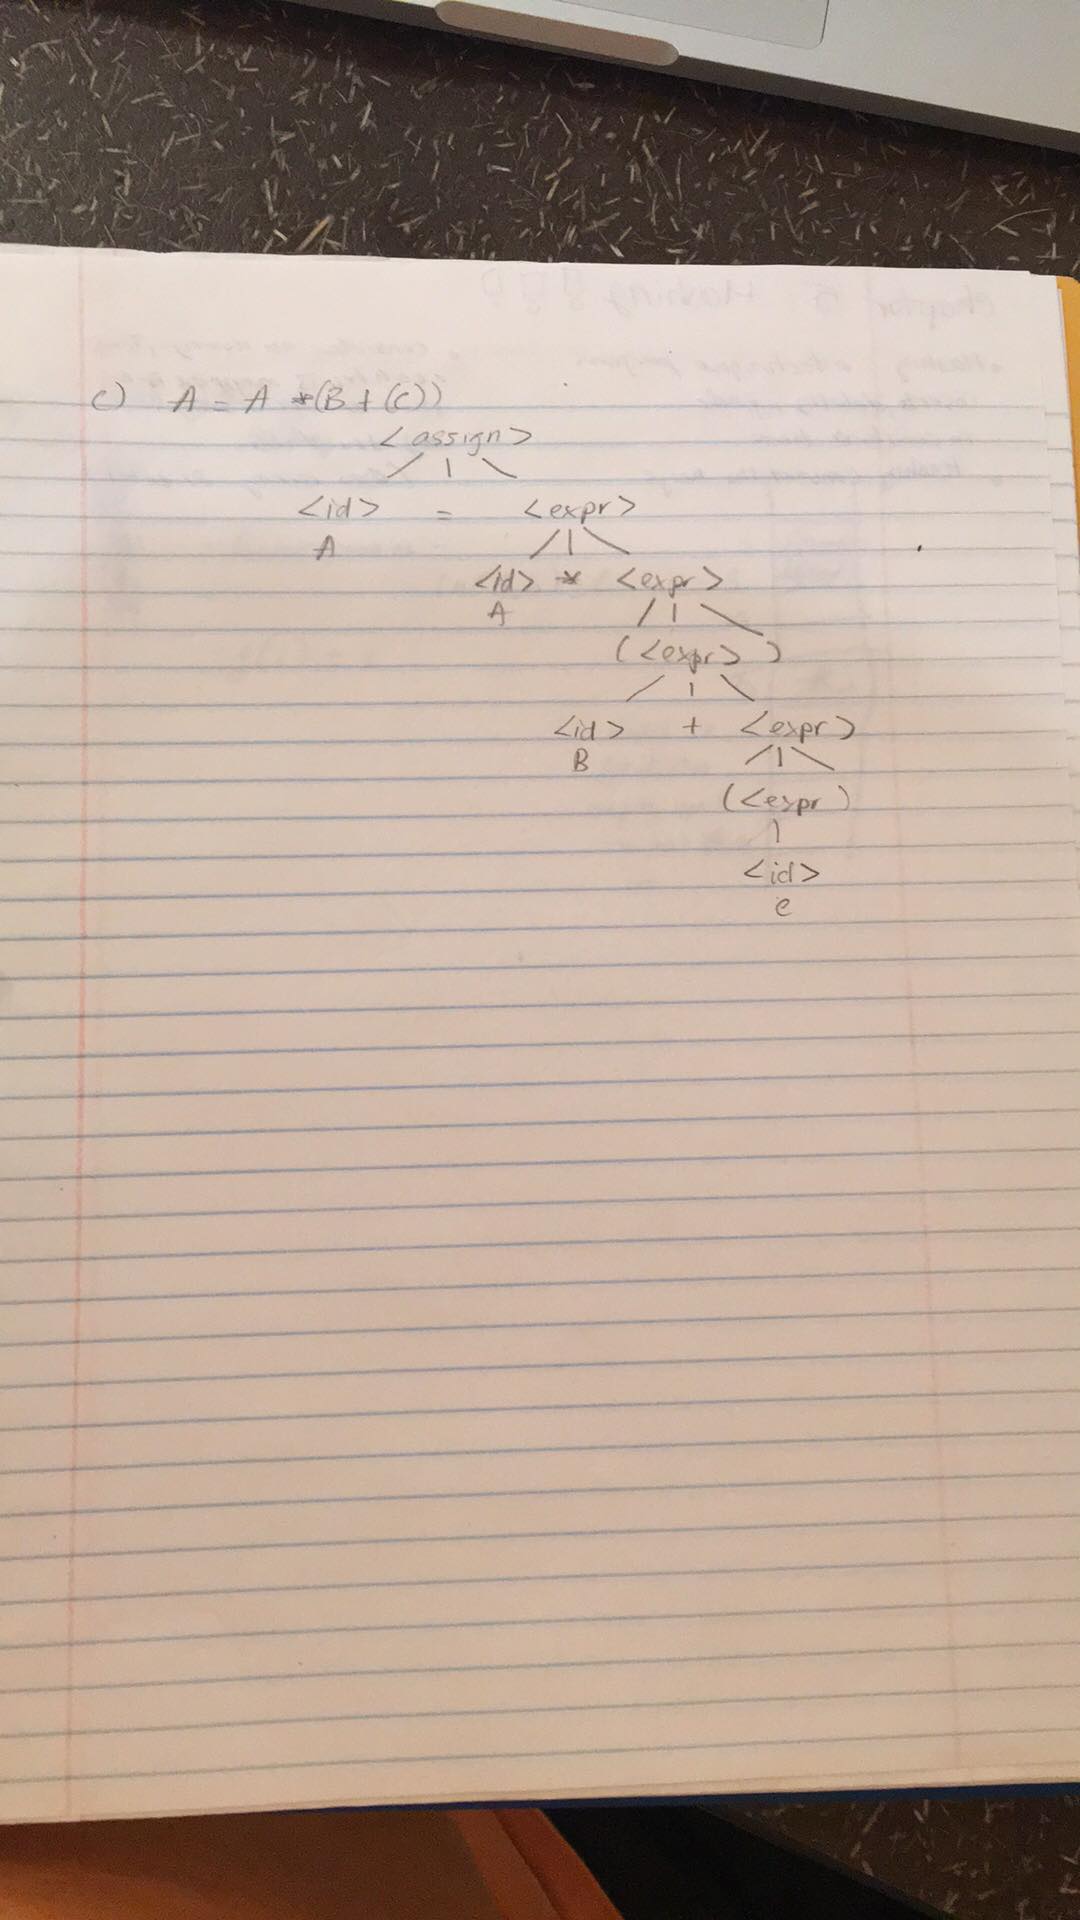 c) A = A *(B + (C))
<assign>
<id> = <expr>
A
<id> * <expr>
A
(<expr> )
<id> + <expr>
B
(<expr )
<id>
C